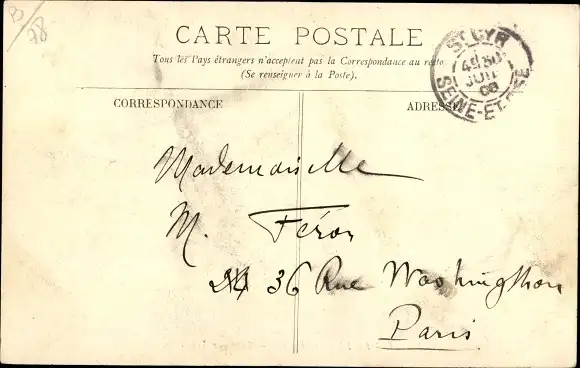 B
78
CARTE POSTALE
Tous les Pays étrangers n'acceptent pas la Correspondance au recto
(Se renseigner à la Poste).
ST CYR
JUIL
SEINE-ET-OISE
CORRESPONDANCE
ADRESSE
Mademoiselle
M. Féron
24 36 Rue Washingthon
Paris